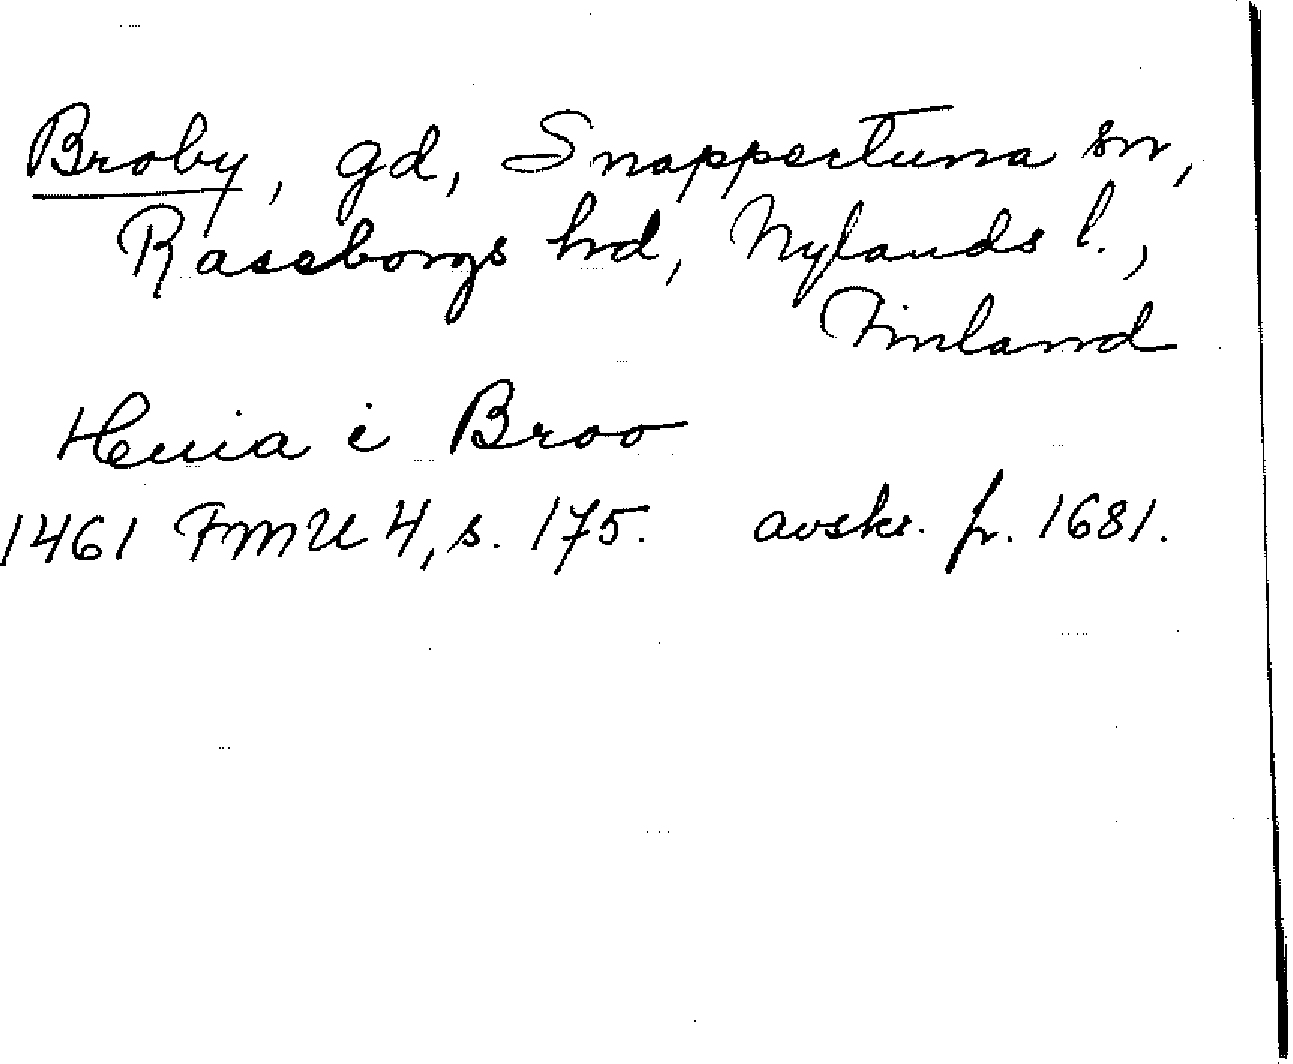 Broby, gd, Snappertuna sn,
Raseborgs hd, Nylands l.,
Finland
i Broo
1461 FMU 4, s. 175. avskr. fr. 1681.